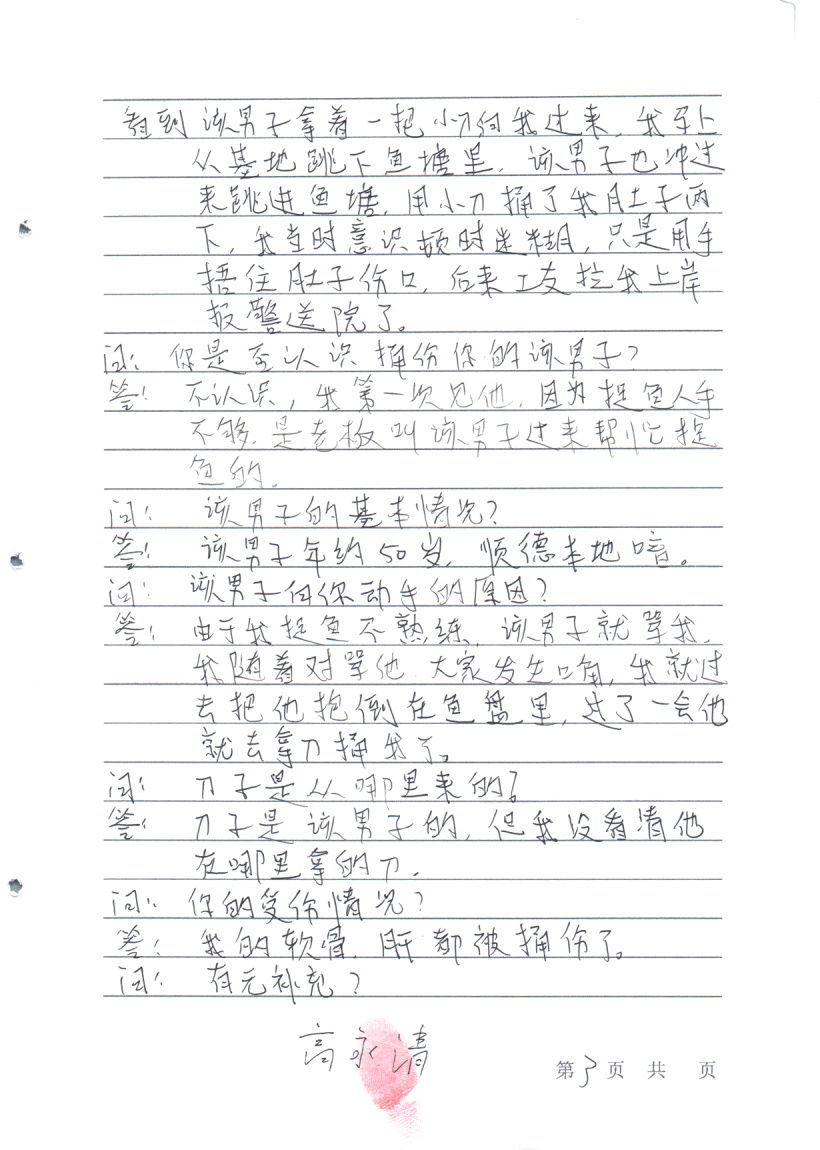 看到该男子拿着一把小刀向我过来，我马上
从基地跳下鱼塘里，该男子也冲过
来跳进鱼塘，用小刀捅了我肚子两
下，我当时意识顿时迷糊，只是用手
捂住肚子伤口，后来工友拉我上岸
报警送院了。
问：你是否认识捅伤你的该男子？
答：不认识，我第一次见他，因为捉鱼人手
不够，是老板叫该男子过来帮忙捉
鱼的。
问：该男子的基本情况？
答：该男子年约50岁，顺德本地口音。
问：该男子向你动手的原因？
答：由于我捉鱼不熟练，该男子就骂我，
我随着对骂他，大家发生口角，我就过
去把他抱倒在鱼盘里，过了一会他
就去拿刀捅我了。
问：刀子是从哪里来的？
答：刀子是该男子的，但我没看清他
在哪里拿的刀。
问：你的受伤情况？
答：我的软骨，肝都被捅伤了。
问：有无补充？
高永清
第3页 共 页